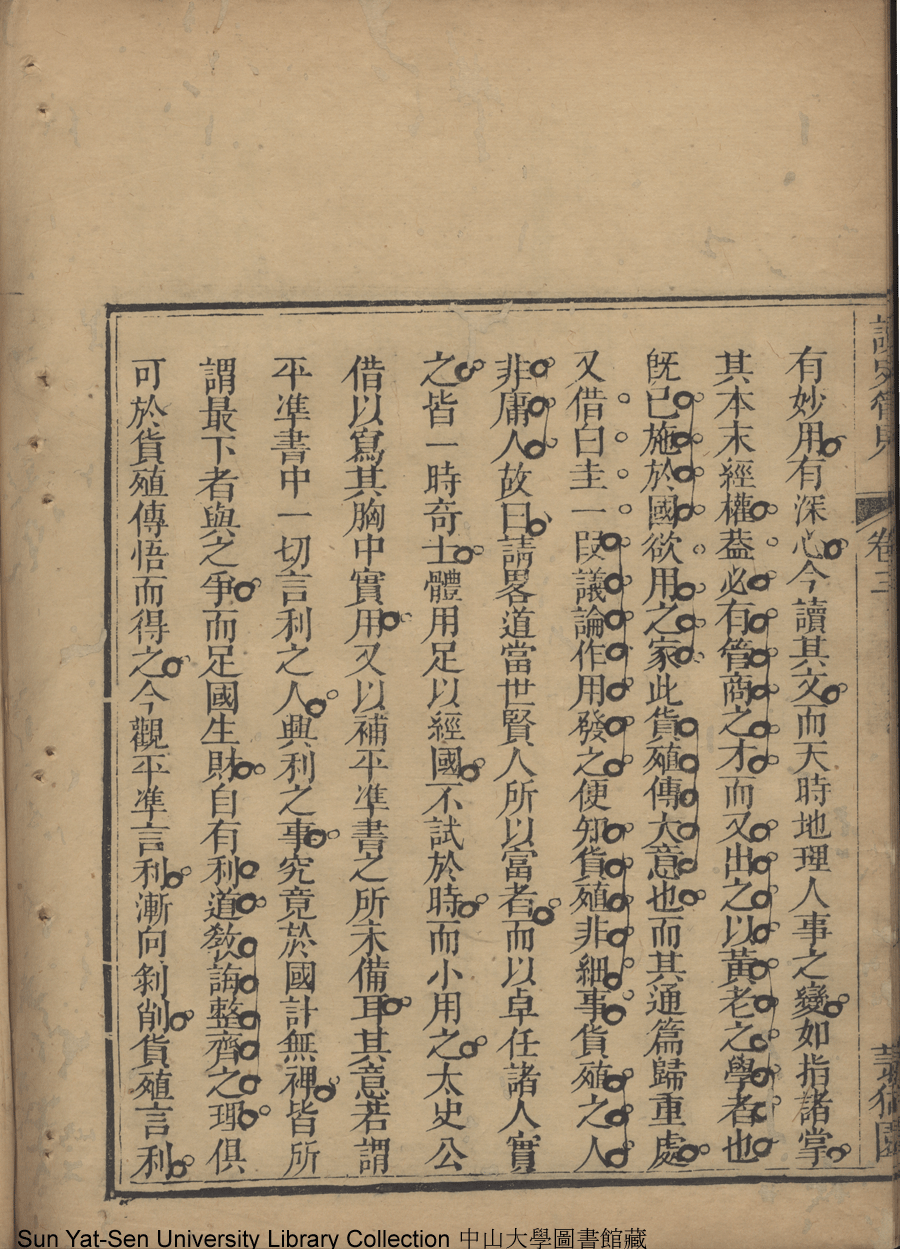 卷三
有妙用有深心今讀其文而天時地理人事之變如指諸掌
其本末經權葢必有管商之才而又出之以黃老之學者也
旣已施於國欲用之家此貨殖傳大意也而其通篇歸重處
又借白圭一段議論作用發之便知貨殖非細事貨殖之人
非庸人故曰請畧道當世賢人所以富者而以卓任諸人實
之皆一時奇士體用足以經國不試於時而小用之太史公
借以寫其胸中實用又以補平準書之所未備耳其意若謂
平準書中一切言利之人興利之事究竟於國計無裨皆所
謂最下者與之爭而足國生財自有利道敎誨整齊之理俱
可於貨殖傳悟而得之今觀平準言利漸向剝削貨殖言利
Sun Yat-Sen University Library Collection 中山大學圖書館藏